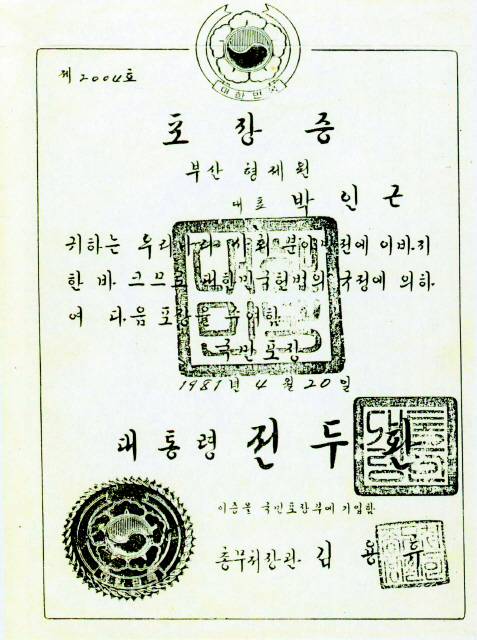 대한민국
제2004호
포장증
부산 형제원
대표 박인근
귀하는 우리나라 사회 분야 발전에 이바지
한 바 크므로 대한민국헌법의 규정에 의하
여 다음 포장을 수여함
국민포장
1981년 4월 20일
대통령 전두환
이 증을 국민포장부에 기입함
총무처장관 김용휴